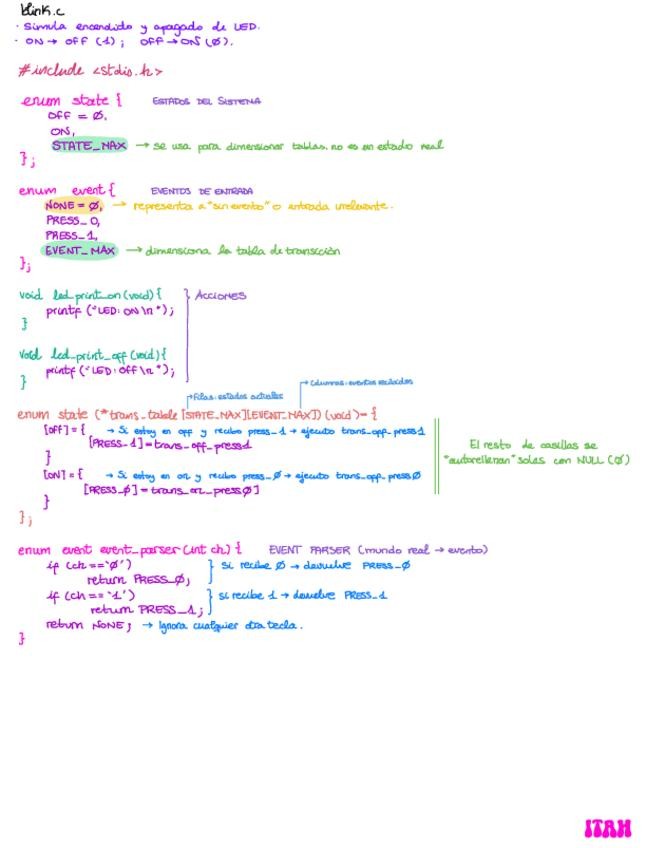 blink.c
· Simula encendido y apagado de LED.
· ON → OFF (1); OFF → ON (Ø).
#include <stdio.h>
enum state { ESTADOS DEL SISTEMA
OFF = Ø,
ON,
STATE_MAX → se usa para dimensionar tablas. no es en estado real
};
enum event { EVENTOS DE ENTRADA
NONE = Ø, → representa a "sin evento" o entrada irrelevante.
PRESS_0,
PRESS_1,
EVENT_MAX → dimensiona la tabla de transición
};
void led_print_on (void) { ACCIONES
printf ("LED: ON \n");
}
void led_print_off (void) {
printf ("LED: OFF \n");
}
→ Filas: estados actuales → Columnas: eventos recibidos
enum state (*trans_table [STATE_MAX][EVENT_MAX]) (void) = {
[OFF] = { → Si estoy en off y recibo press_1 → ejecuto trans_off_press1
[PRESS_1] = trans_off_press1
}
[ON] = { → Si estoy en on y recibo press_Ø → ejecuto trans_off_pressØ
[PRESS_Ø] = trans_on_pressØ]
}
};
El resto de casillas se
"autorellenan" solas con NULL (Ø)
enum event event_parser (int ch) { EVENT PARSER (mundo real → evento)
if (ch == 'Ø') si recibe Ø → devuelve PRESS_Ø
return PRESS_Ø;
if (ch == '1') si recibe 1 → devuelve PRESS_1
return PRESS_1;
return NONE; → Ignora cualquier otra tecla.
}
ITAH